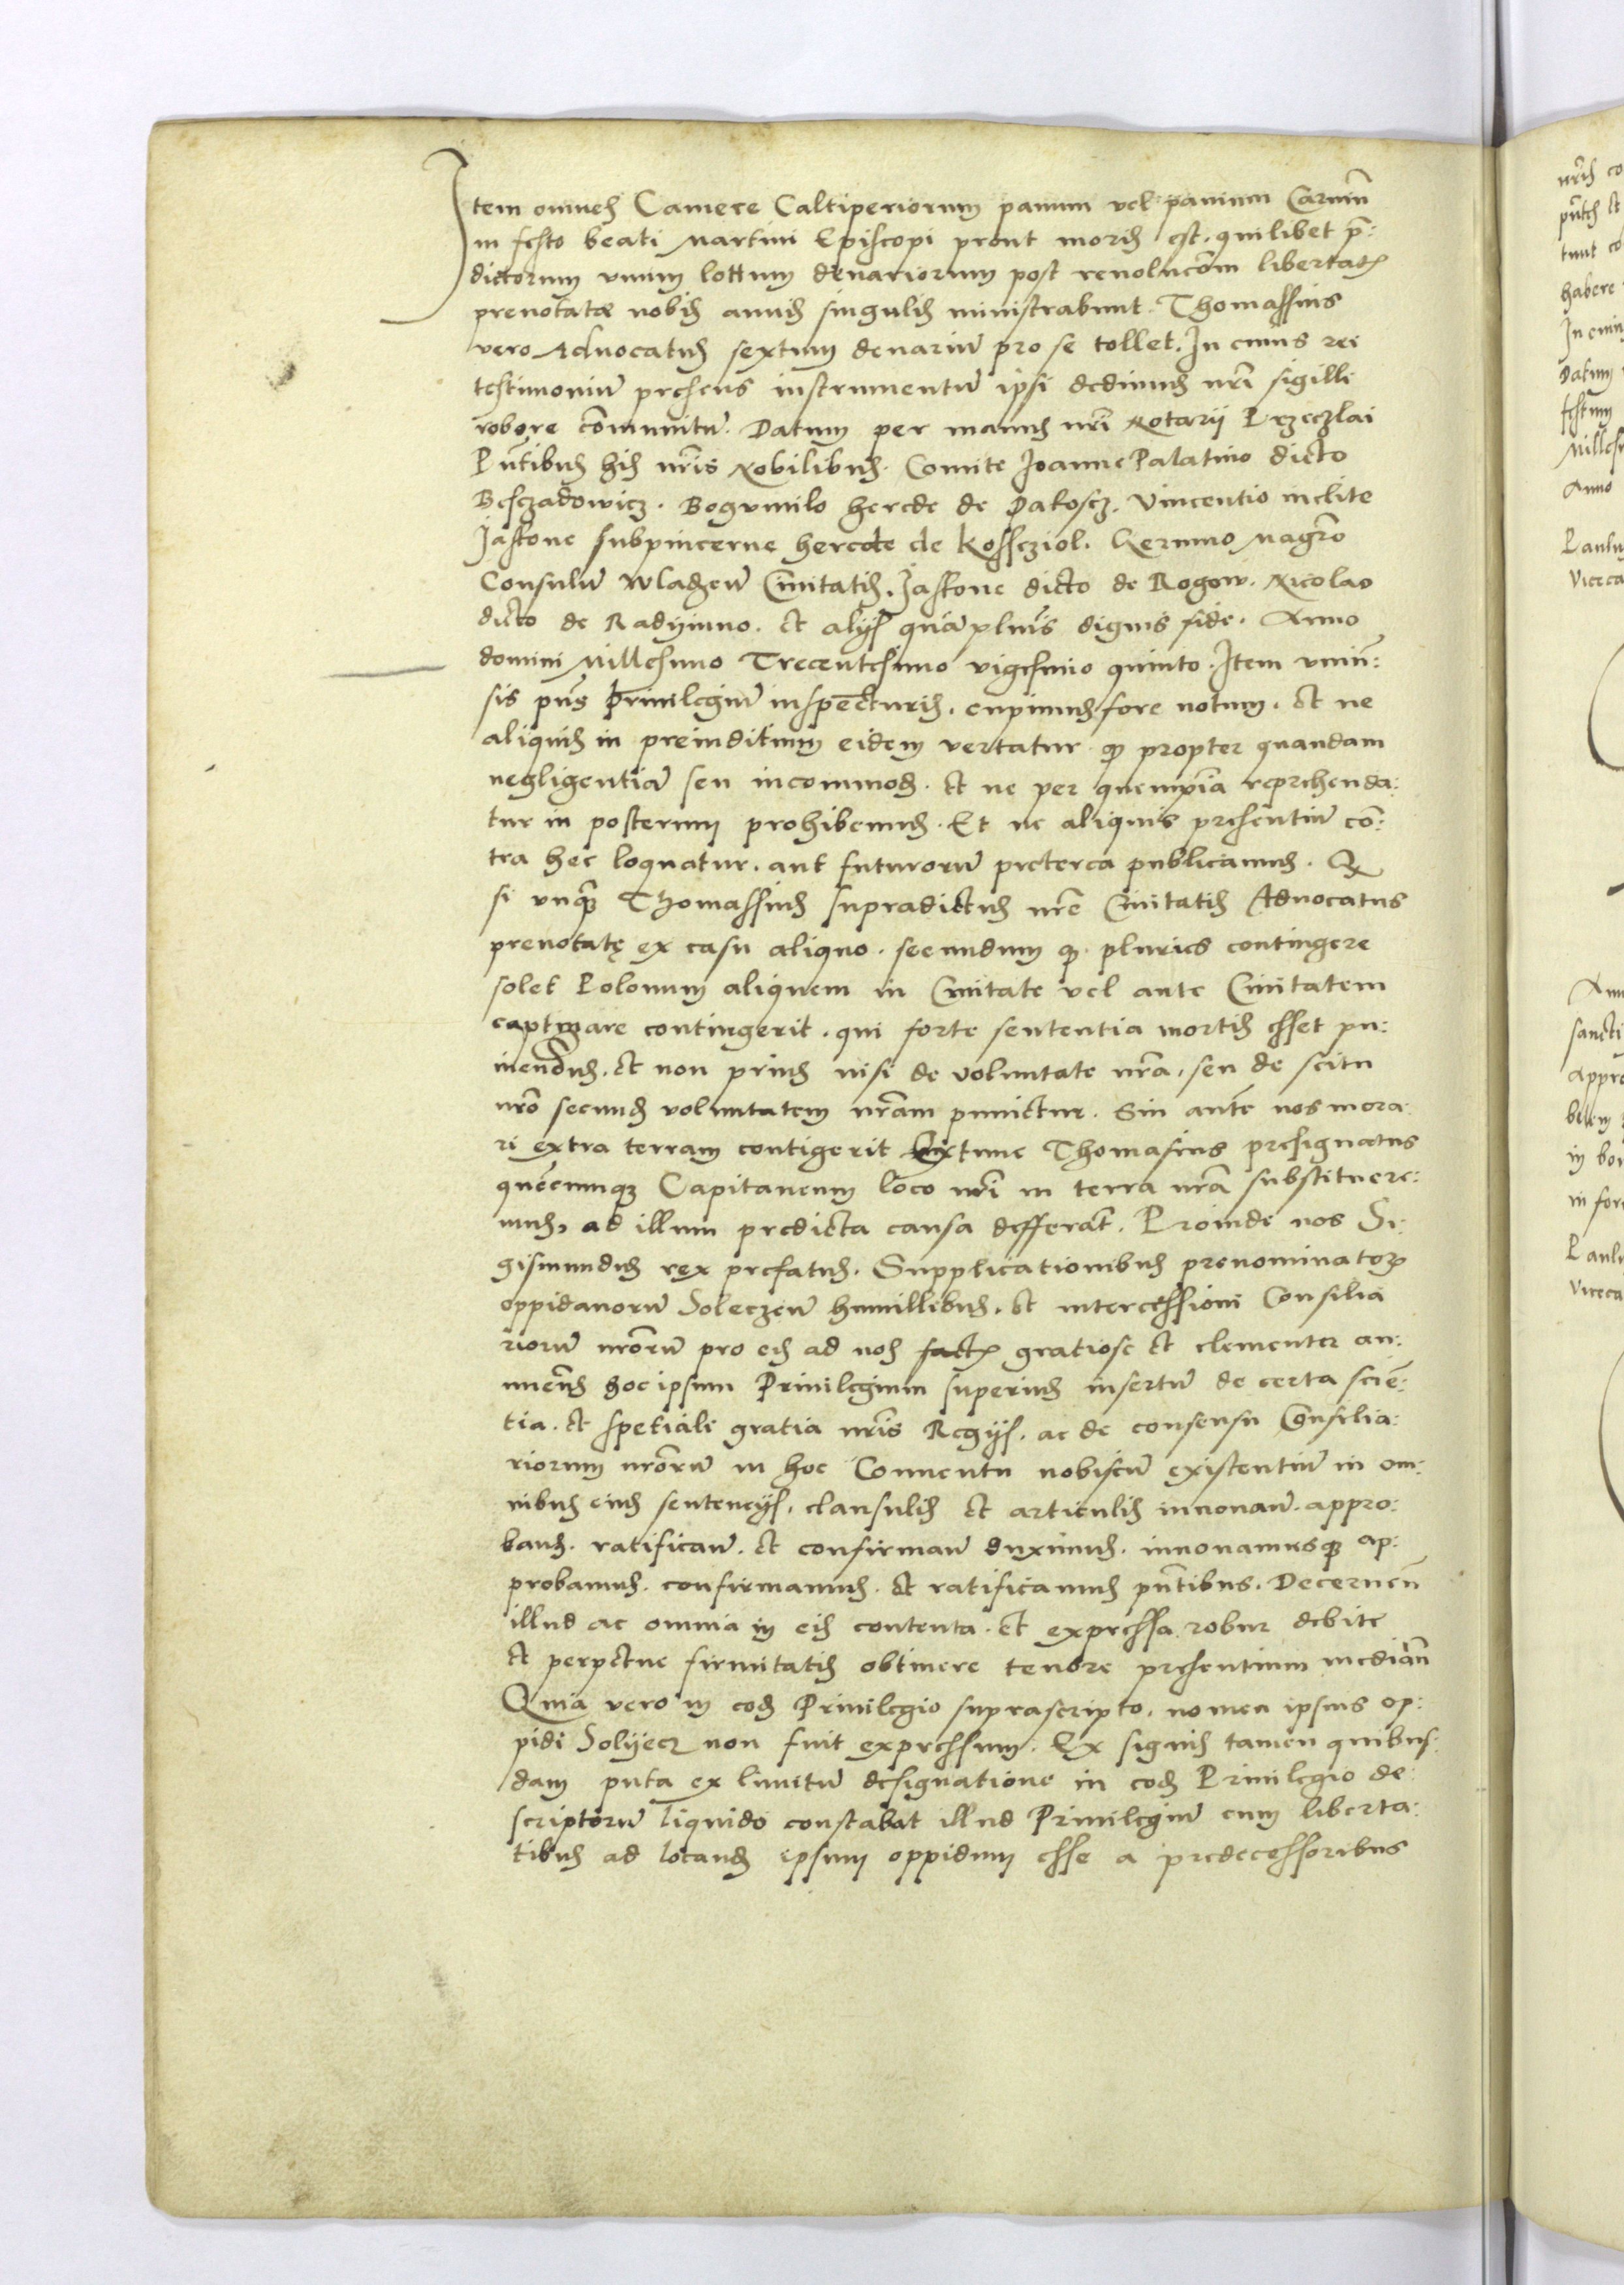 Item omnes Camere Caltiperiorum panum vel pannum Carnium
in festo beati Martini Episcopi prout moris est. quilibet prę:
dictorum vnum lottum denariorum post reuolucōm libertatis
prenotatæ nobis annis singulis ministrabunt. Thomassius
vero Aduocatus sextum denariū pro se tollet. In cuius rei
testimoniū presens instrumentū ipsi dedimus nrī sigilli
robore cōmunitū. Datum per manus nrī Notarij Przeczlai
Pn̄tibus his nrīs Nobilibus. Comite Joanne Palatino dicto
Besczadowicz. Bogumilo herede de Pakoscz. Vincentio inclite
Jaskone subpincerne herede de Kosscziol. Gerunno Magrō
Consulū Wladzeū Ciuitatis. Jaskone dicto de Rogow. Nicolao
dicto de Radijmno. et alijs quāpluris dignis fide. Anno
domini Millesimo Trecentesimo vigesimo quinto. Item vniu̅:
sis pn̄s Priuilegiū inspecturis. cupimus fore notum. et ne
aliquis in preiuditium eidem vertatur qd propter quandam
negligentiā seu incommod. et ne per quempiā reprehenda:
tur in posterum prohibemus. Et ne aliquis presentiū cō:
tra hec loquatur. aut futurorū preterea publicamus. Qd
si vnq̄ Thomassius supradictus nrē Ciuitatis Aduocatus
prenotatę ex casu aliquo. secundum qd pluries contingere
solet Polonum aliquem in Ciuitate vel ante Ciuitatem
captiuare contingerit. qui forte sententia mortis esset pu:
niendus. et non prius nisi de voluntate nrā. seu de scitu
nrō secund voluntatem nrām punietur. Sin autē nos mora:
ri extra terram contigerit Extunc Thomasius presignatus
quēcunq Capitaneum loco nrī in terra nrā substituere:
mus, ad illum predicta causa defferāt. Proinde nos Si:
gismundus rex prefatus. Supplicationibus prenominator
oppidanorū Soleczeū humillibus. et intercessioni Consilia
riorū nrōrū pro eis ad nos factis gratiose et clementer an:
nuen̄s hoc ipsum Priuilegium superius insertū de certa sciē:
tia. et spetiale gratia nrīs Regijs. ac de consensu Consilia:
riorum nrōrū in hoc Conuentu nobiscū existentiū in om:
nibus eius sentencijs. clausulis et articulis innouan̄. appro:
band. ratifican̄. et confirman̄ duximus. innouamusq ap:
probamus. confirmamus. et ratificamus pn̄tibus. Decernen̄
illud ac omnia in eis contenta. et expressa robur debite
et perpetue firmitatis obtinere tenore presentium median̄
Quia vero in eod Priuilegio suprascripto. nomen ipsius op:
pidi Solijecz non fuit expressum. Ex signis tamen quibus:
dam puta ex limitū designatione in eod Priuilegio de:
scriptorū liquido constabat illud Priuilegiū cum liberta:
tibus ad locand ipsum oppidum esse a predecessoribus